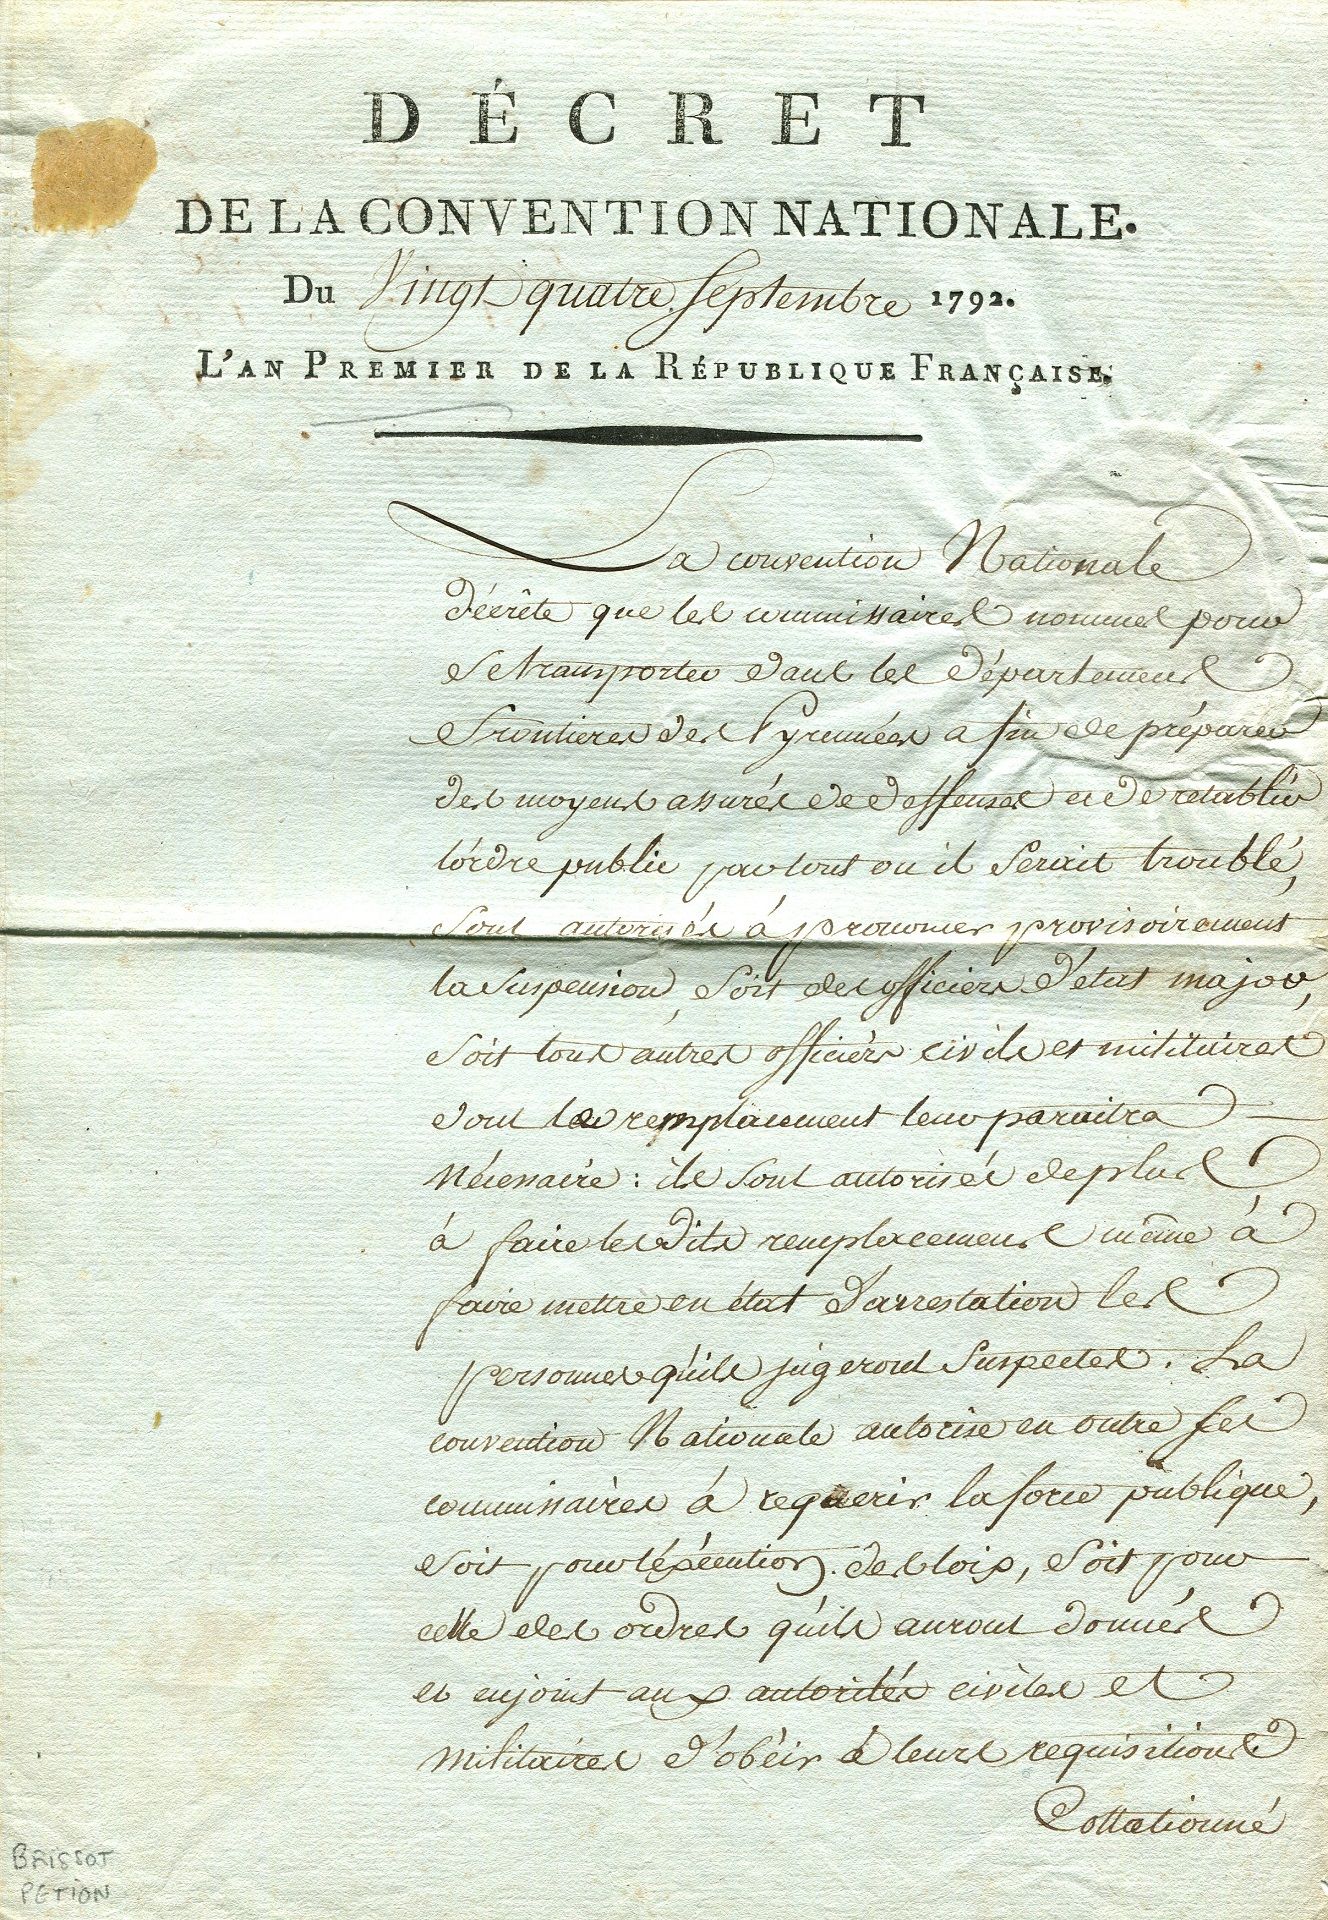 DÉCRET
DE LA CONVENTION NATIONALE.
Du Vingt quatre Septembre 1792.
L'AN PREMIER DE LA RÉPUBLIQUE FRANÇAISE.
La convention Nationale
décrète que les commissaires nommés pour
Se transporter dans les départemens
Frontieres des Pyrennées a fin de préparer
des moyens assurés de deffenses et de retablir
l'órdre public partout ou il Serait troublé,
Sont autorisés à prononcer provisoirement
la Suspension, Soit des officiers d'état major,
Soit tous autres officiérs civils et militaires
dont le remplacement leur paraitra
nécessaire : ils Sont autorisés de plus
à faire lesdits remplacemens même à
faire mettre en état d'arrestation les
personnes qu'ils jugeront Suspectes. La
convention Nationale autorise en outre ses
commissaires à requerir la force publique,
Soit pour l'éxécution des loix, Soit pour
celle des ordres qu'ils auront donnés
et enjoint aux autorités civiles et
Militaires d'obéir à leurs requisitions.
Collationné
BRISSOT
PETION